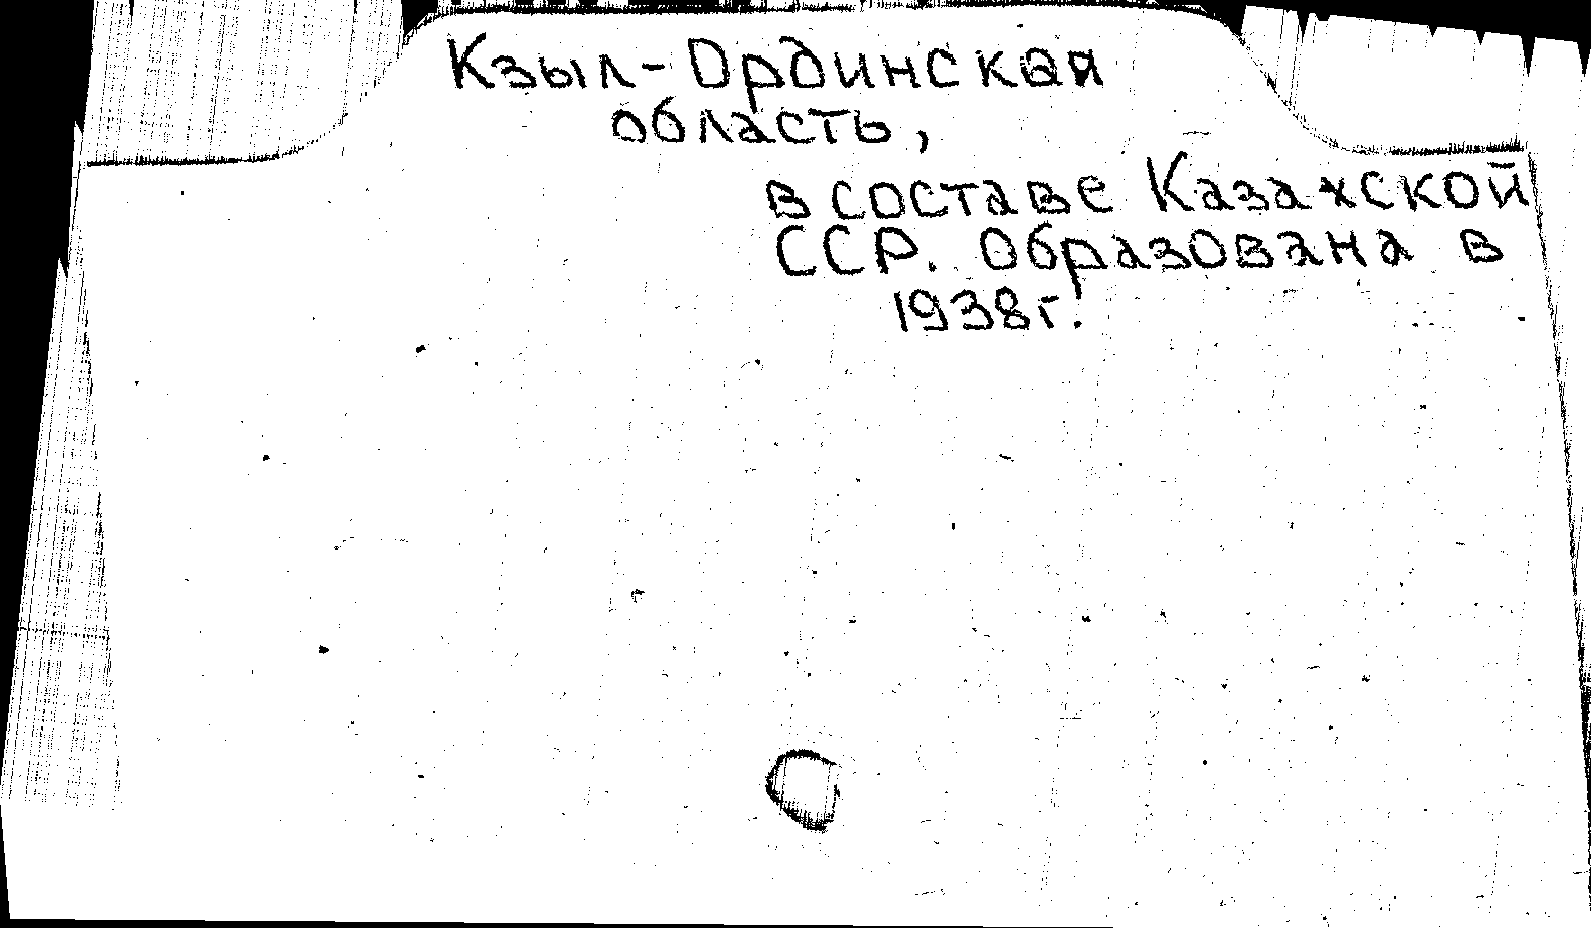 Кзыл-Ординская
область,
в составе Казахской
ССР. Образована в
1938г.